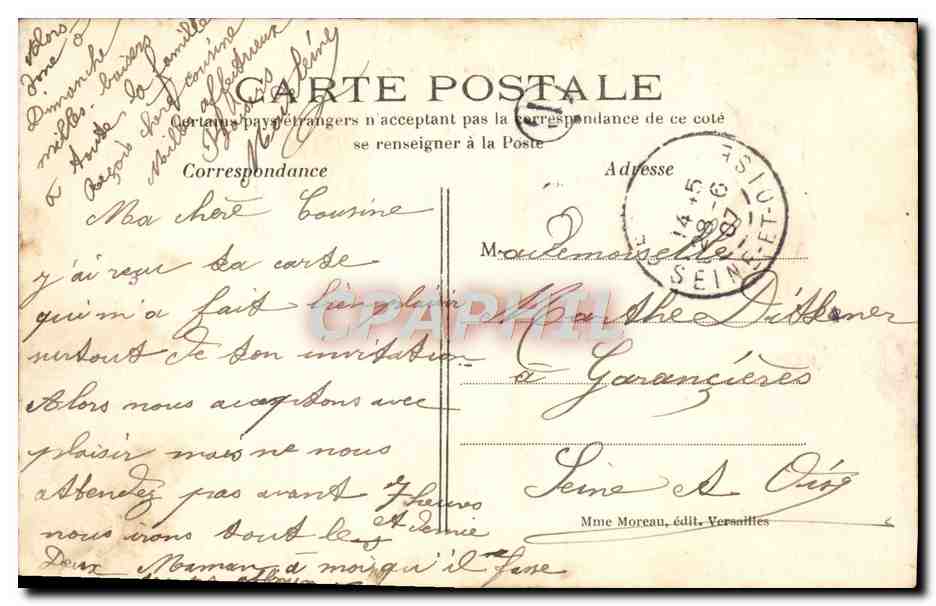 Alors
Dimanche
milles baisers
à toute la famille
Reçois chère cousine
Mille affectueux
Baisers
CARTE POSTALE
Certains pays étrangers n'acceptant pas la correspondance de ce coté
se renseigner à la Poste
Correspondance
Ma chère Cousine
j'ai reçu ta carte
qui m'a fait bien plaisir
surtout de ton invitation
Alors nous acceptons avec
plaisir mais ne nous
attendez pas avant 7 heures
et demie
nous irons tout les
Deux Maman à moins qu'il ne fasse
Adresse
Mademoiselle
Marthe
à Garancières
Seine et Oise
Mme Moreau, édit. Versailles
14 45
28 -6
07
SEINE-ET-OISE
CPAPHIL